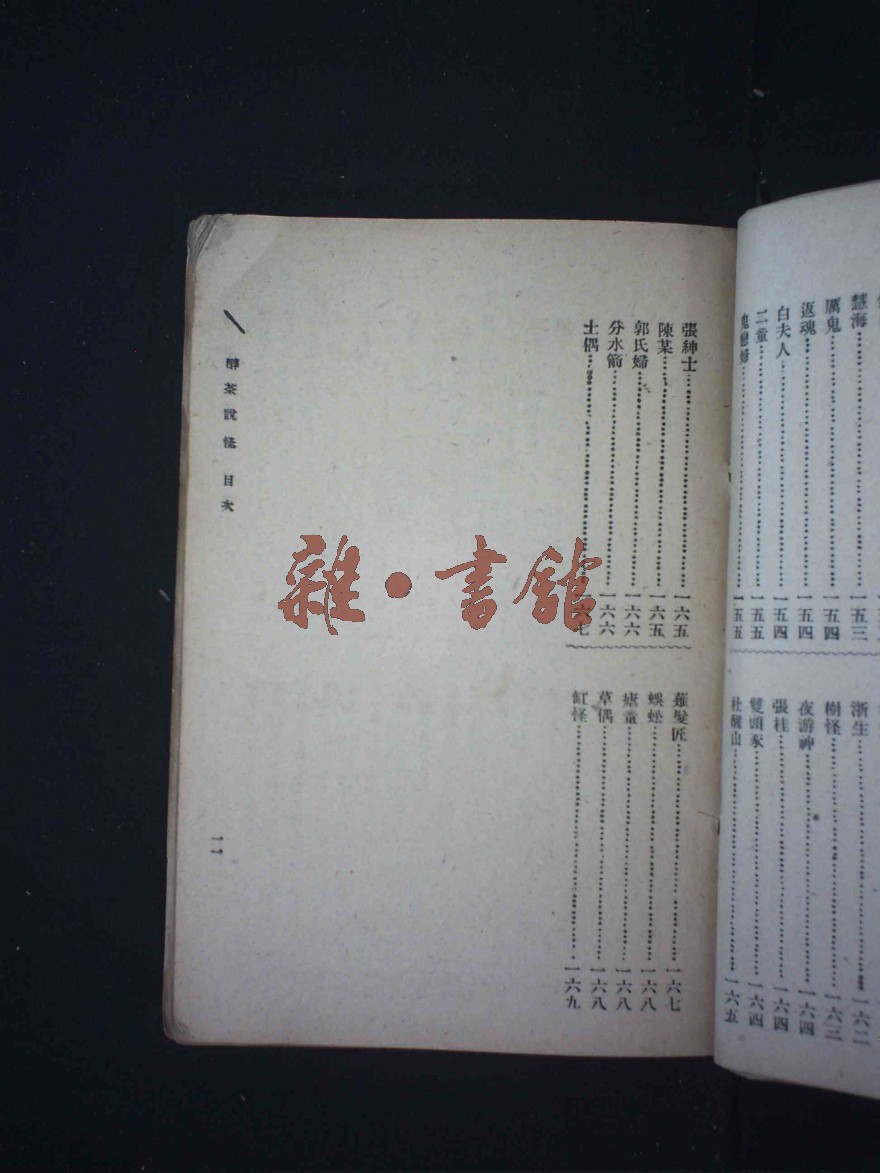 慧海…一五三
厲鬼…一五四
返魂…一五四
白夫人…一五四
二童…一五五
鬼戀婦…一五五
浙生…一六二
樹怪…一六三
夜游神…一六四
張桂…一六四
雙頭豕…一六四
杜醒山…一六五
張紳士…一六五
陳某…一六五
郭氏婦…一六六
分水箭…一六六
土偶…一六七
薙髮匠…一六七
蜈蚣…一六八
瘧童…一六八
草偶…一六八
缸怪…一六九
醉茶說怪 目次
一一
雜·書館